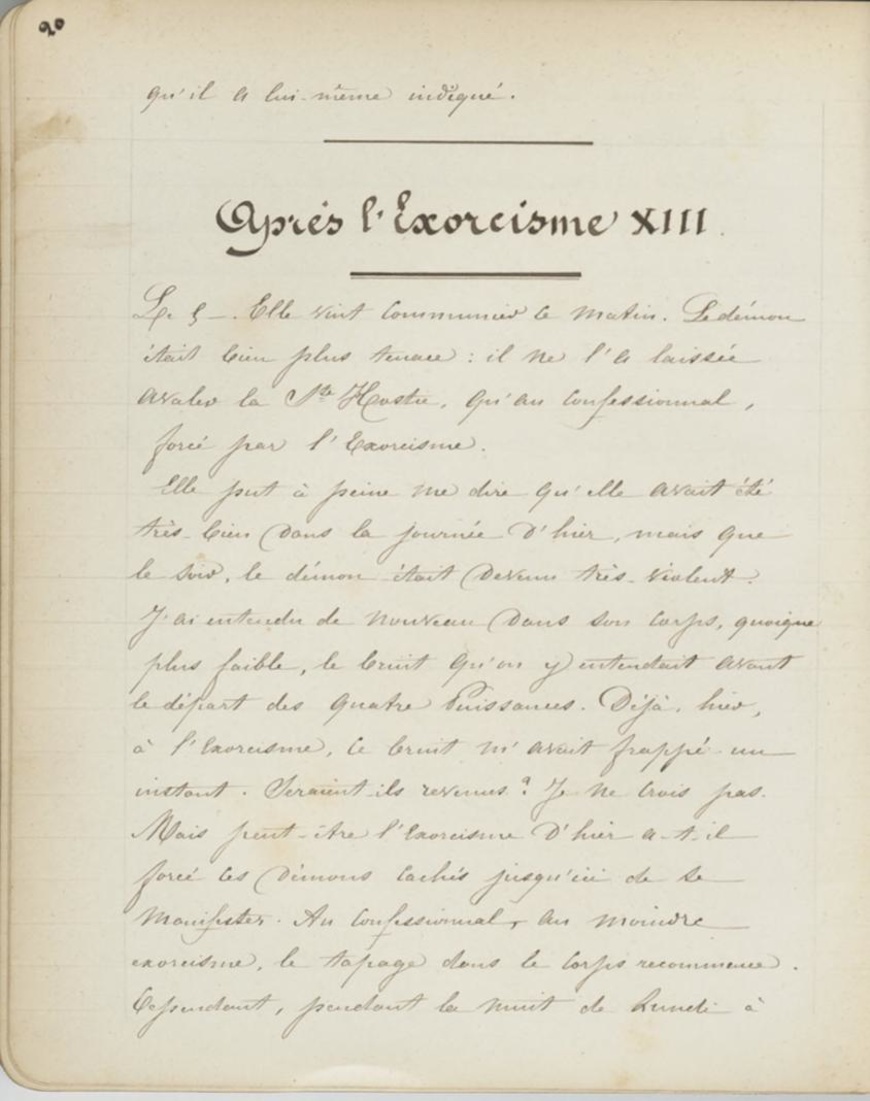 90
qu'il a lui-même indiqué.
Après l'Exorcisme XIII.
Le 5 – Elle vint communier ce matin. Le démon
était bien plus tenace : il ne l'a laissée
avaler la Ste Hostie, qu'au confessionnal,
forcé par l'Exorcisme.
Elle put à peine me dire qu'elle avait été
très-bien dans la journée d'hier, mais que
le soir, le démon était devenu très-violent.
J'ai entendu de nouveau dans son corps, quoique
plus faible, le bruit qu'on y entendait avant
le départ des quatre Puissances. Déjà, hier,
à l'Exorcisme, ce bruit m'avait frappé un
instant. Seraient-ils revenus ? Je ne crois pas.
Mais peut-être l'Exorcisme d'hier a-t-il
forcé ces démons cachés jusqu'ici de se
manifester. Au confessionnal, au moindre
exorcisme, le tapage dans le corps recommence.
Cependant, pendant la nuit de Lundi à